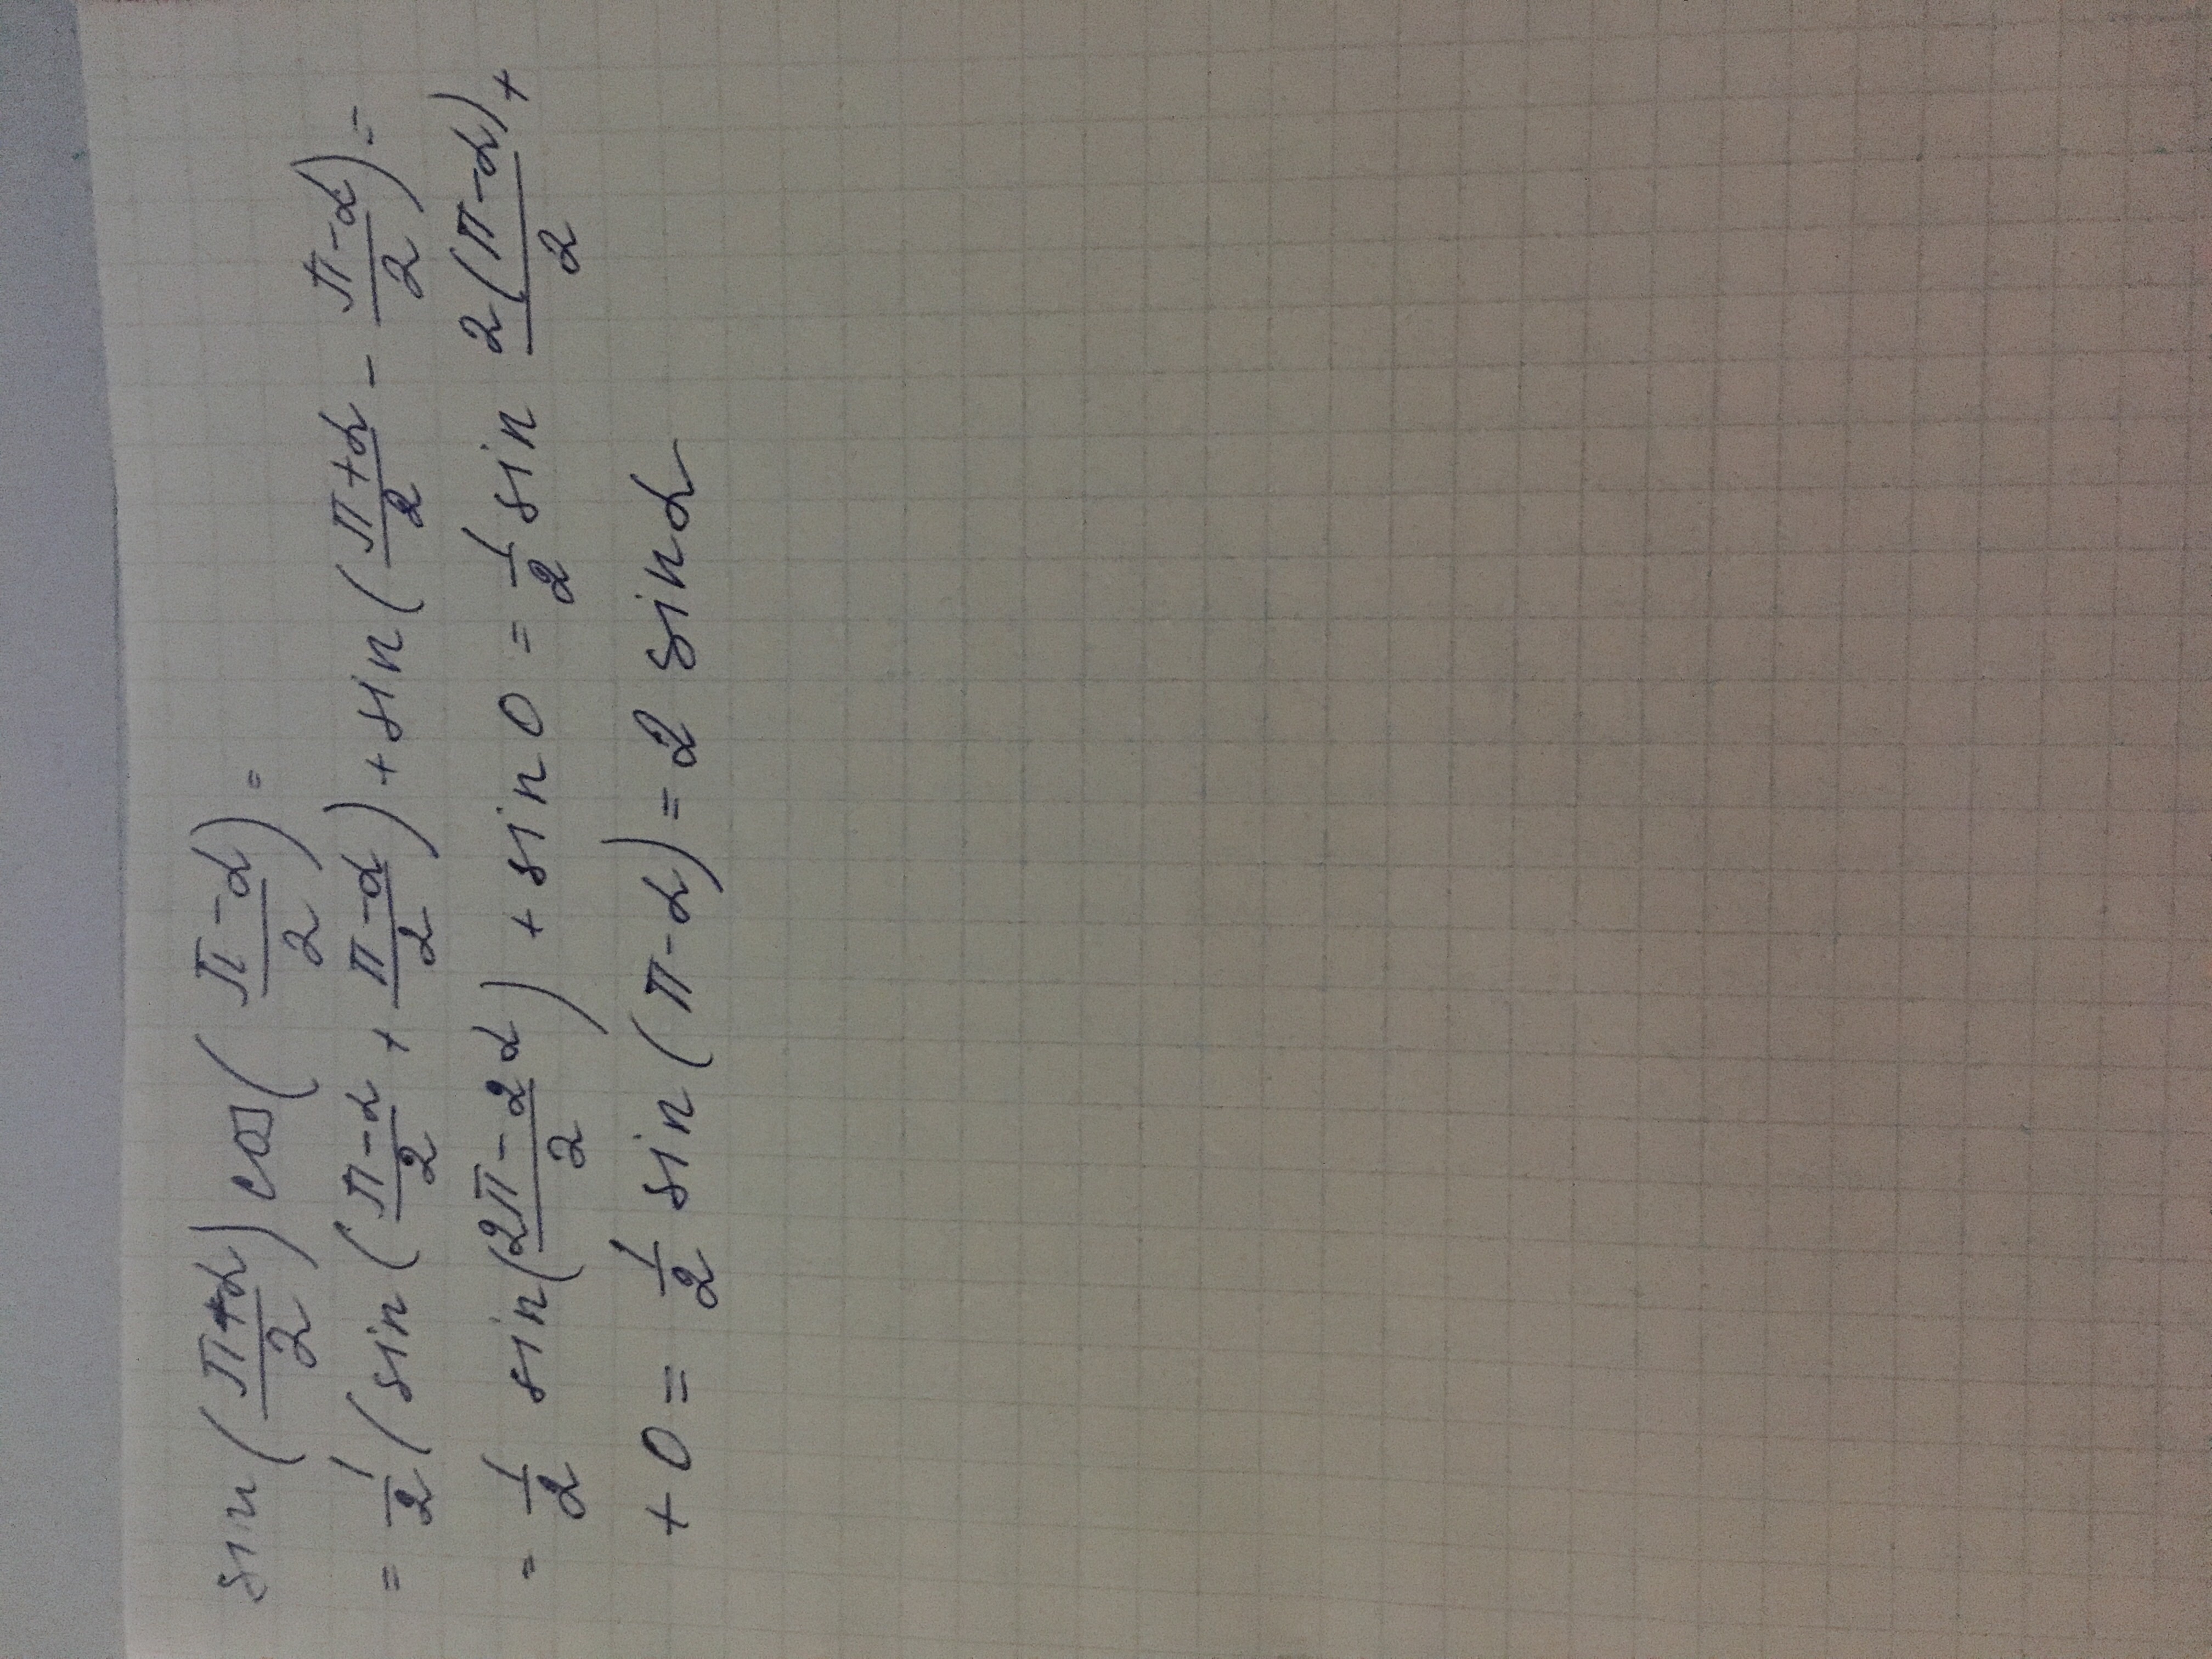 sin(π+α/2) cos(π-α/2) =
= 1/2 (sin(π-α/2 + π-α/2) + sin(π+α/2 - π-α/2) =
= 1/2 sin(2π-2α/2) + sin 0 = 1/2 sin 2(π-α)/2 +
+ 0 = 1/2 sin(π-α) = 2 sin α